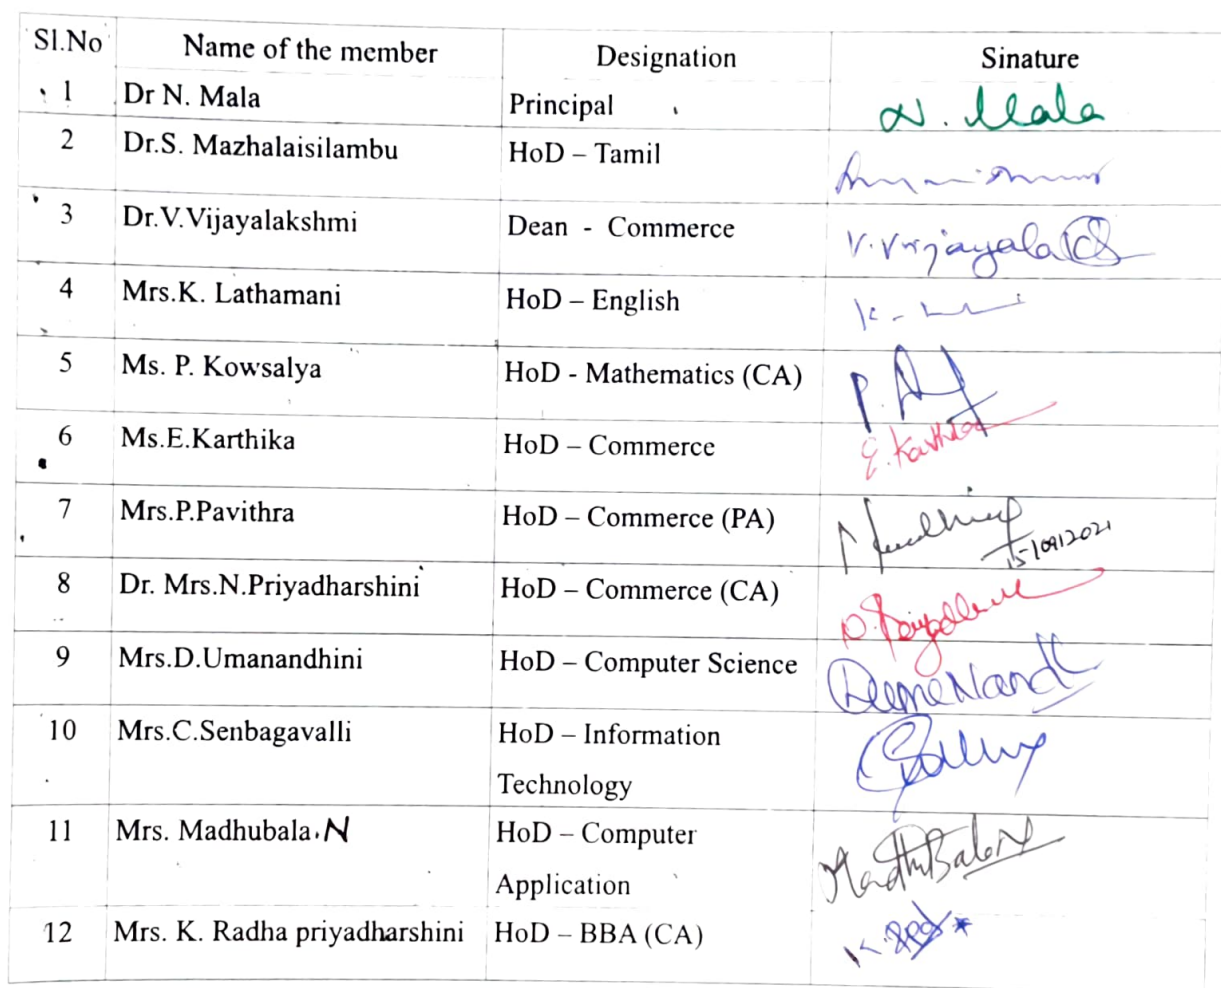 Sl.No Name of the member Designation Sinature
1 Dr N. Mala Principal N. Mala
2 Dr.S. Mazhalaisilambu HoD – Tamil
3 Dr.V.Vijayalakshmi Dean - Commerce V.Vijayala
4 Mrs.K. Lathamani HoD – English K.
5 Ms. P. Kowsalya HoD - Mathematics (CA) P.
6 Ms.E.Karthika HoD – Commerce E.Karthika
7 Mrs.P.Pavithra HoD – Commerce (PA) 15/09/2021
8 Dr. Mrs.N.Priyadharshini HoD – Commerce (CA)
9 Mrs.D.Umanandhini HoD – Computer Science
10 Mrs.C.Senbagavalli HoD – Information
Technology
11 Mrs. Madhubala.N HoD – Computer MadhuBala N
Application
12 Mrs. K. Radha priyadharshini HoD – BBA (CA) K.